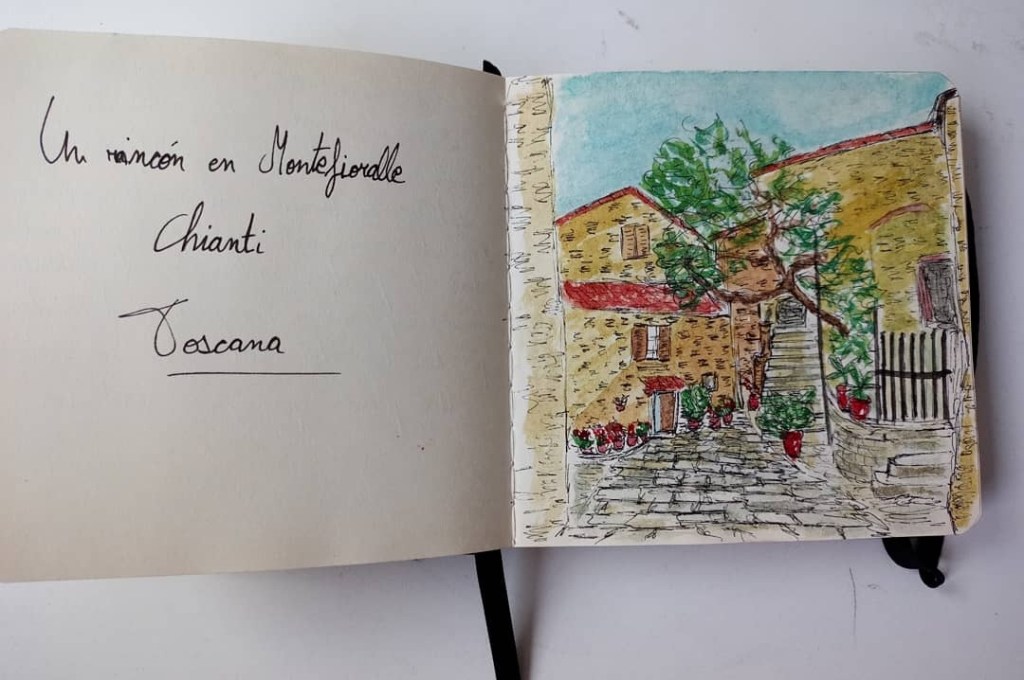 Un rincón en Montefioralle
Chianti
Toscana